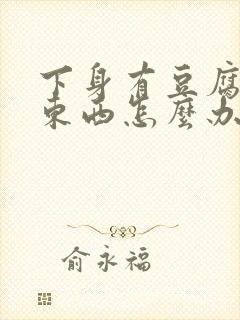 下身有豆腐
東西怎麼办
俞永福